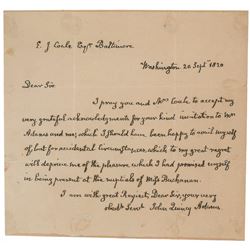 E. J. Coale Esqr. Baltimore
Washington 20 Septr 1820
Dear Sir
I pray you and Mrs Coale to accept my
very grateful acknowledgments for your kind invitation to Mrs
Adams and me; which I should have been happy to avail myself
of, but for accidental circumstances, which to my great regret
will deprive me of the pleasure, which I had promised myself
in being present at the nuptials of Miss Buchanan.
I am with great Respect, Dear Sir, your very
obedt Servt John Quincy Adams